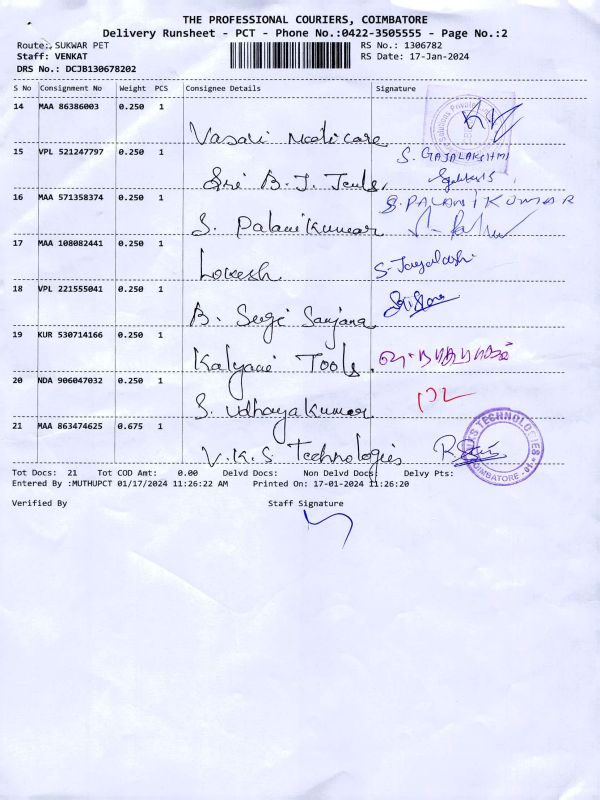 THE PROFESSIONAL COURIERS, COIMBATORE
Delivery Runsheet - PCT - Phone No.:0422-3505555 - Page No.:2
Route:, SUKWAR PET RS No.: 1306782
Staff: VENKAT RS Date: 17-Jan-2024
DRS No.: DCJB130678202
S No Consignment No Weight PCS Consignee Details Signature
14 MAA 86386003 0.250 1
Vasavi Medi care
15 VPL 521247797 0.250 1 S. GAJALAKSHMI
Sri B. J. 
16 MAA 571358374 0.250 1 S. PALANI KUMAR
S. Palani Kumar
17 MAA 108082441 0.250 1
Lokesh
18 VPL 221555041 0.250 1
B. Sanjana
19 KUR 530714166 0.250 1
Kalyani Tools.
20 NDA 906047032 0.250 1
S. Udhaya Kumar
21 MAA 863474625 0.675 1
V.K.S Technologies
TECHNOLOGIES COIMBATORE
Tot Docs: 21 Tot COD Amt: 0.00 Delvd Docs: Non Delvd Docs: Delvy Pts:
Entered By :MUTHUPCT 01/17/2024 11:26:22 AM Printed On: 17-01-2024 11:26:20
Verified By Staff Signature